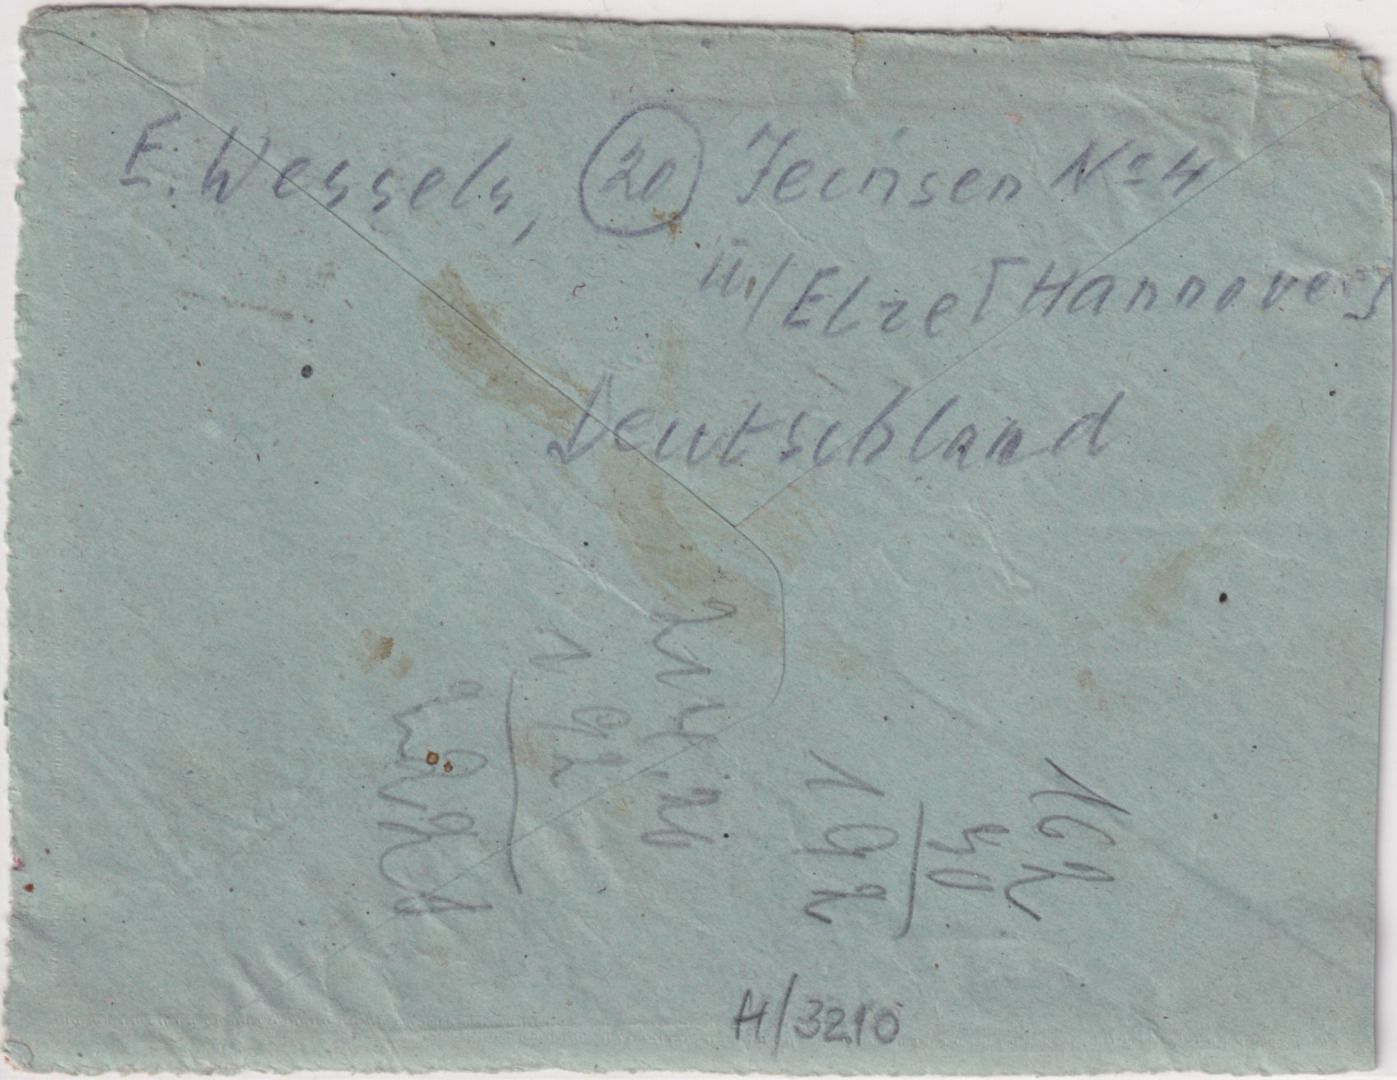 E. Wessels, (20) Jeinsen No 4
ü./Elze [Hannover]
Deutschland
162
30
192
H/3210